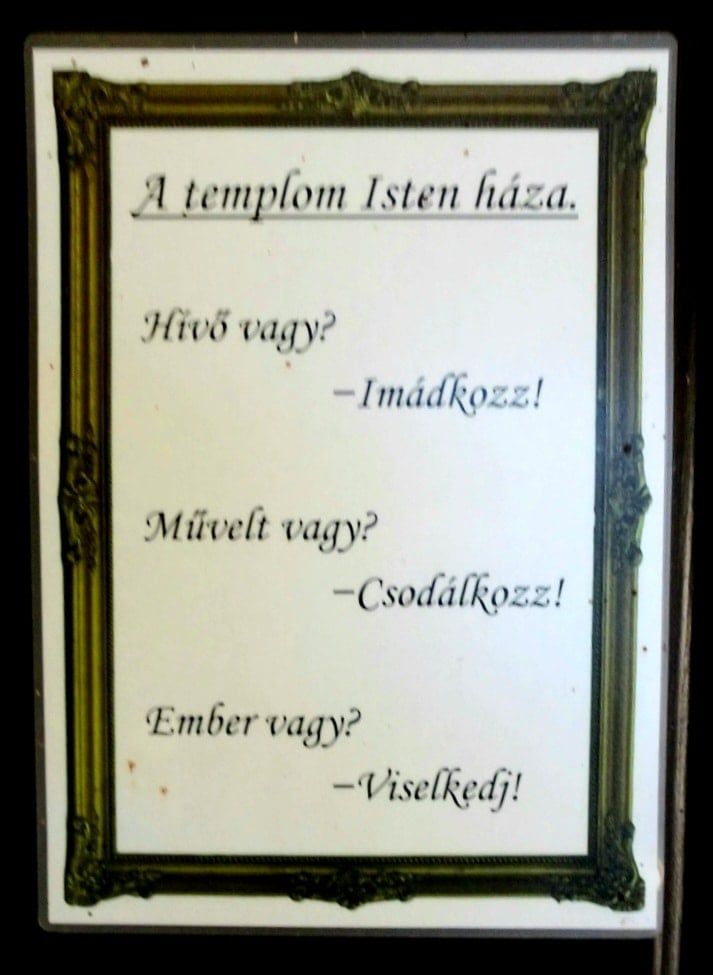 A templom Isten háza.
Hívő vagy?
–Imádkozz!
Művelt vagy?
–Csodálkozz!
Ember vagy?
–Viselkedj!